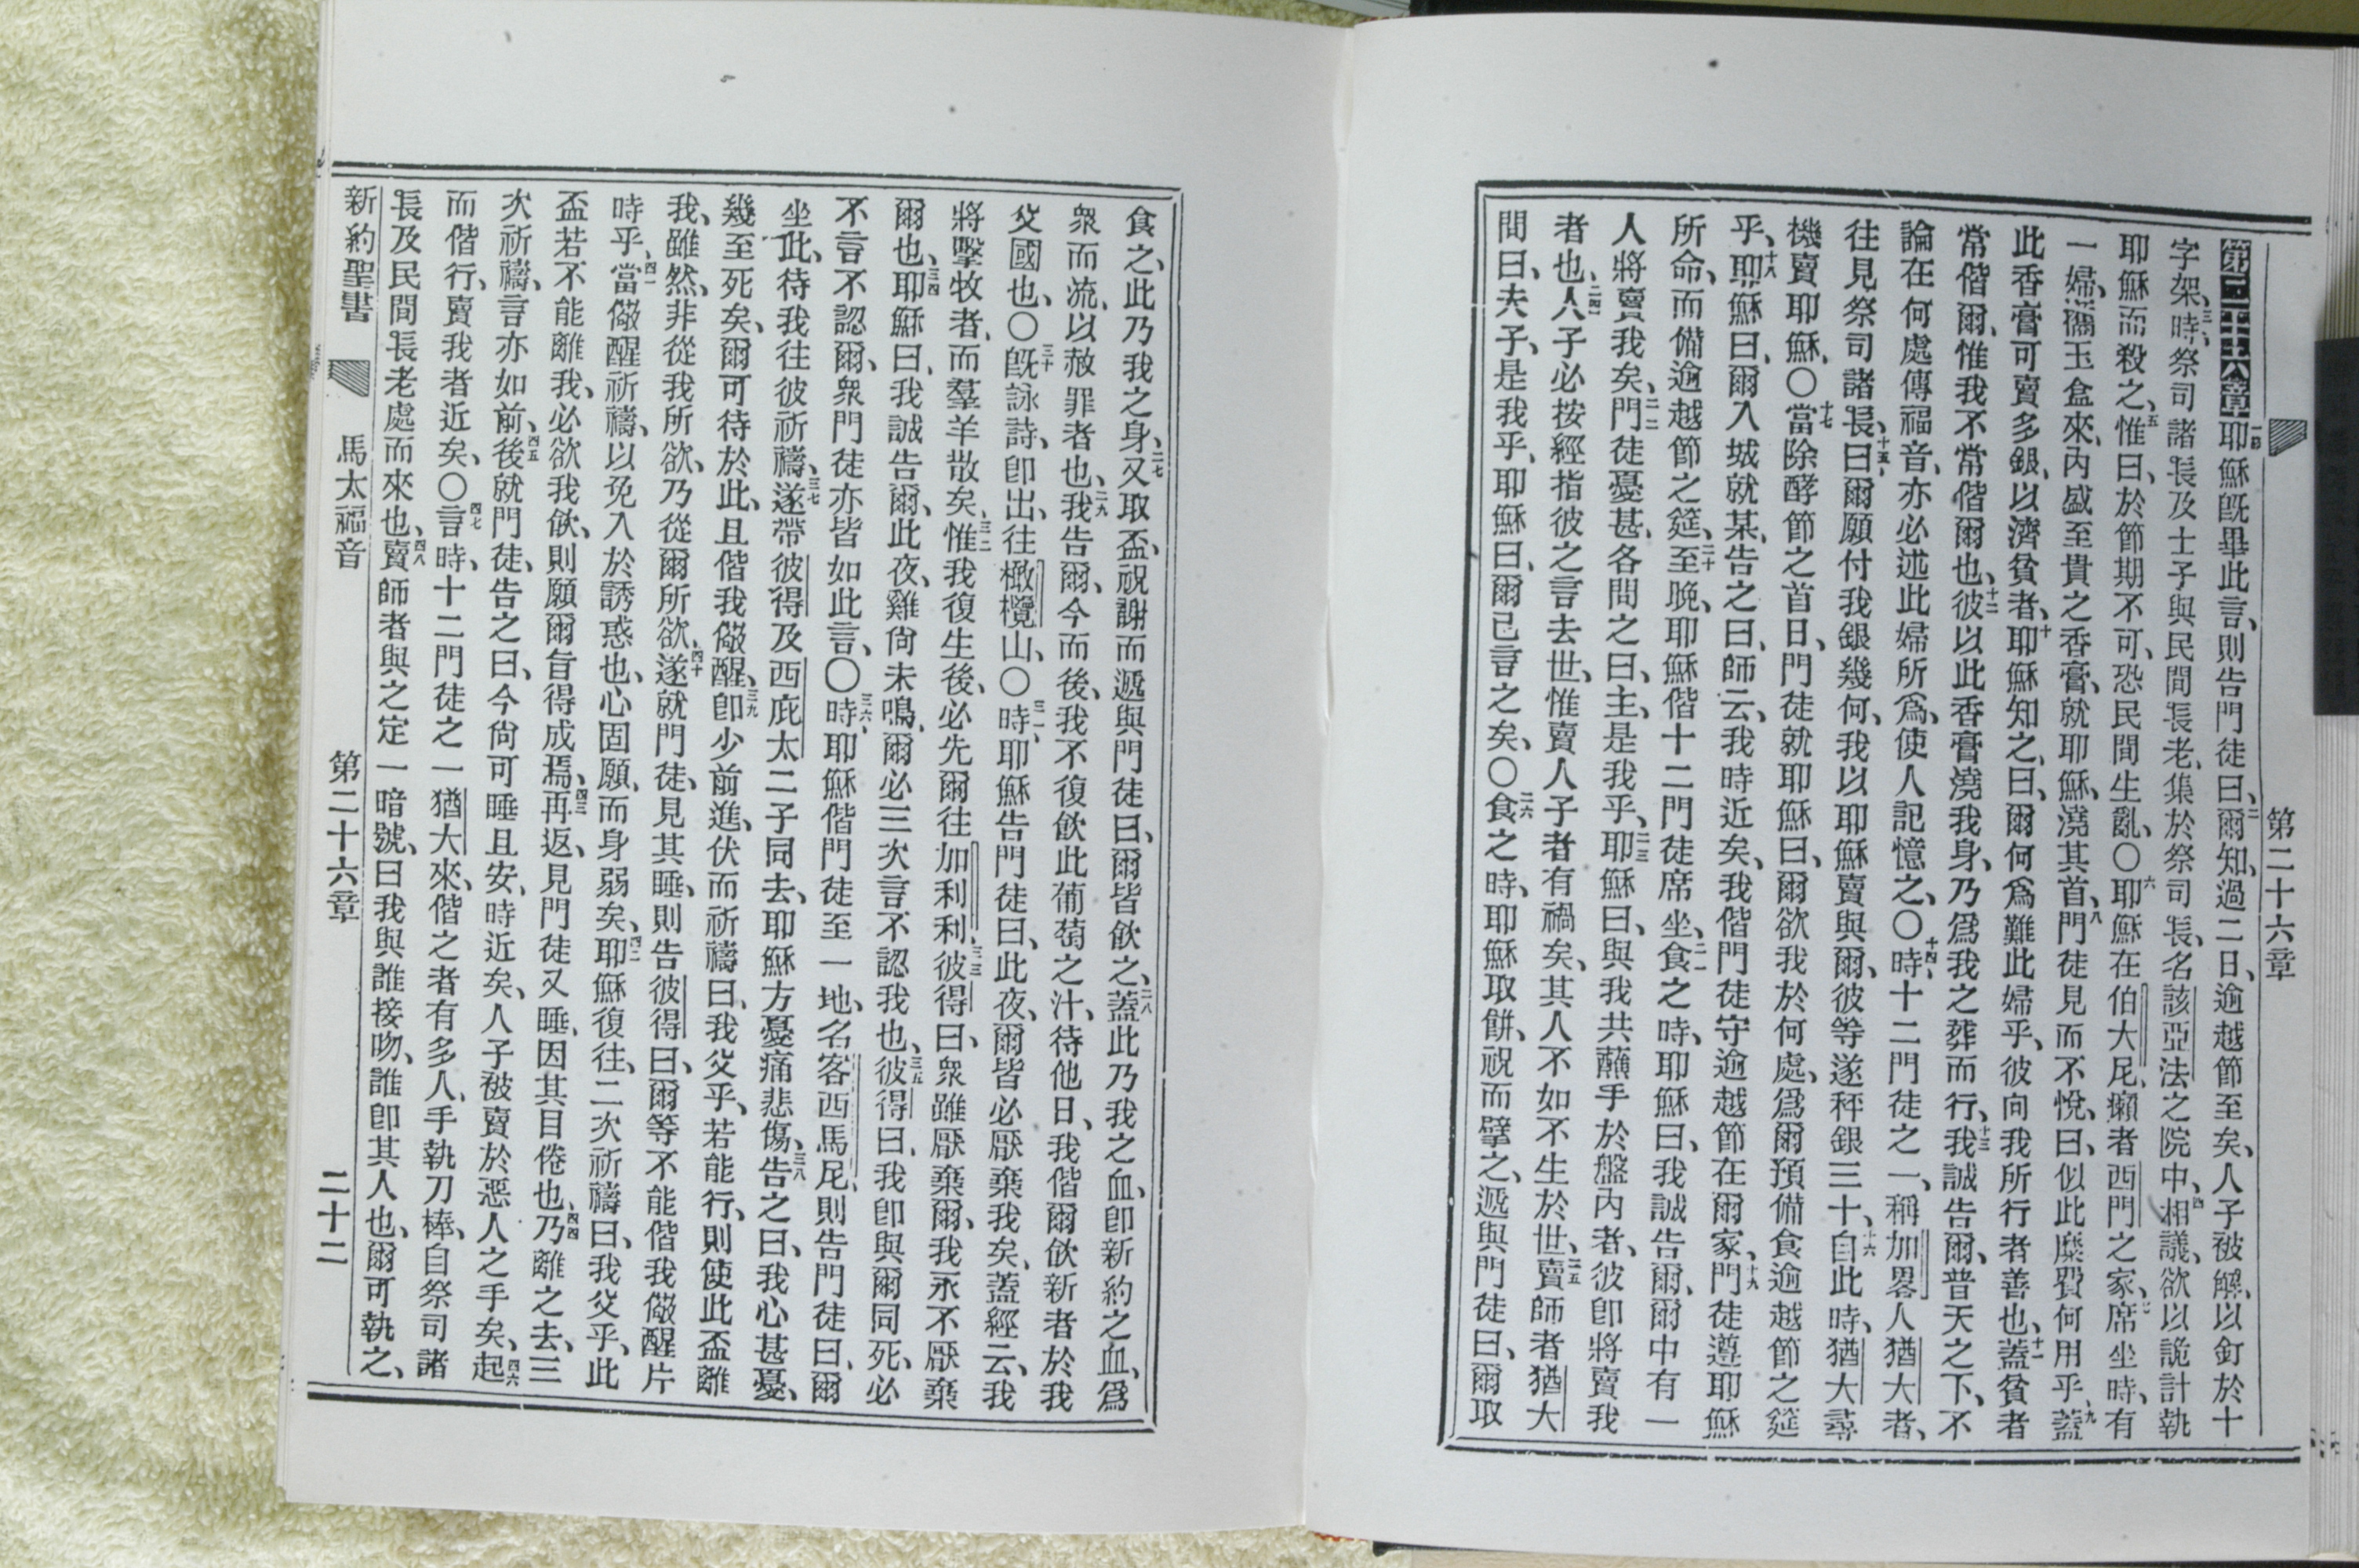 第二十六章
第二十六章一節耶穌旣畢此言、則告門徒曰、二爾知、過二日、逾越節至矣、人子被解、以釘於十
字架、三時、祭司諸長及士子與民間長老、集於祭司長、名該亞法之院中、四相議、欲以詭計執
耶穌而殺之、五惟曰、於節期不可、恐民間生亂、〇六耶穌在伯大尼、癩者西門之家、七席坐時、有
一婦、攜玉盒來、內盛至貴之香膏、就耶穌、澆其首、八門徒見而不悅、曰、似此糜費何用乎、九蓋
此香膏可賣多銀、以濟貧者、十耶穌知之、曰、爾何爲難此婦乎、彼向我所行者善也、十一蓋貧者
常偕爾、惟我不常偕爾也、十二彼以此香膏澆我身、乃爲我之葬而行、十三我誠告爾、普天之下、不
論在何處傳福音、亦必述此婦所爲、使人記憶之、〇十四時、十二門徒之一、稱加畧人猶大者、
往見祭司諸長、十五曰、爾願付我銀幾何、我以耶穌賣與爾、彼等遂秤銀三十、十六自此時、猶大尋
機賣耶穌、〇十七當除酵節之首日、門徒就耶穌曰、爾欲我於何處、爲爾預備食逾越節之筵
乎、十八耶穌曰、爾入城就某、告之曰、師云、我時近矣、我偕門徒守逾越節在爾家、十九門徒遵耶穌
所命、而備逾越節之筵、二十至晚、耶穌偕十二門徒席坐、二一食之時、耶穌曰、我誠告爾、爾中有一
人將賣我矣、二二門徒憂甚、各問之曰、主、是我乎、二三耶穌曰、與我共蘸手於盤內者、彼卽將賣我
者也、二四人子必按經指彼之言去世、惟賣人子者有禍矣、其人不如不生於世、二五賣師者猶大
問曰、夫子、是我乎、耶穌曰、爾已言之矣、〇二六食之時、耶穌取餅、祝而擘之、遞與門徒曰、爾取
食之、此乃我之身、二七又取盃、祝謝而遞與門徒曰、爾皆飮之、二八蓋此乃我之血、卽新約之血、爲
衆而流、以赦罪者也、二九我告爾、今而後、我不復飮此葡萄之汁、待他日、我偕爾飮新者於我
父國也、〇三十旣詠詩、卽出、往橄欖山、〇三一時、耶穌告門徒曰、此夜、爾皆必厭棄我矣、蓋經云、我
將擊牧者、而羣羊散矣、三二惟我復生後、必先爾往加利利、三三彼得曰、衆雖厭棄爾、我永不厭棄
爾也、三四耶穌曰、我誠告爾、此夜、雞尙未鳴、爾必三次言不認我也、三五彼得曰、我卽與爾同死、必
不言不認爾、衆門徒亦皆如此言、〇三六時、耶穌偕門徒至一地、名客西馬尼、則告門徒曰、爾
坐此、待我往彼祈禱、三七遂帶彼得及西庇太二子同去、耶穌方憂痛悲傷、三八告之曰、我心甚憂、
幾至死矣、爾可待於此、且偕我儆醒、三九卽少前進、伏而祈禱曰、我父乎、若能行、則使此盃離
我、雖然、非從我所欲、乃從爾所欲、四十遂就門徒、見其睡、則告彼得曰、爾等不能偕我儆醒片
時乎、四一當儆醒祈禱、以免入於誘惑也、心固願、而身弱矣、四二耶穌復往、二次祈禱曰、我父乎、此
盃若不能離我、必欲我飮、則願爾旨得成焉、四三再返、見門徒又睡、因其目倦也、四四乃離之去、三
次祈禱、言亦如前、四五後就門徒、告之曰、今尙可睡且安、時近矣、人子被賣於惡人之手矣、四六起
而偕行、賣我者近矣、〇四七言時、十二門徒之一猶大來、偕之者有多人、手執刀棒、自祭司諸
長及民間長老處而來也、四八賣師者與之定一暗號、曰我與誰接吻、誰卽其人也、爾可執之、
新約聖書 馬太福音 第二十六章 二十二